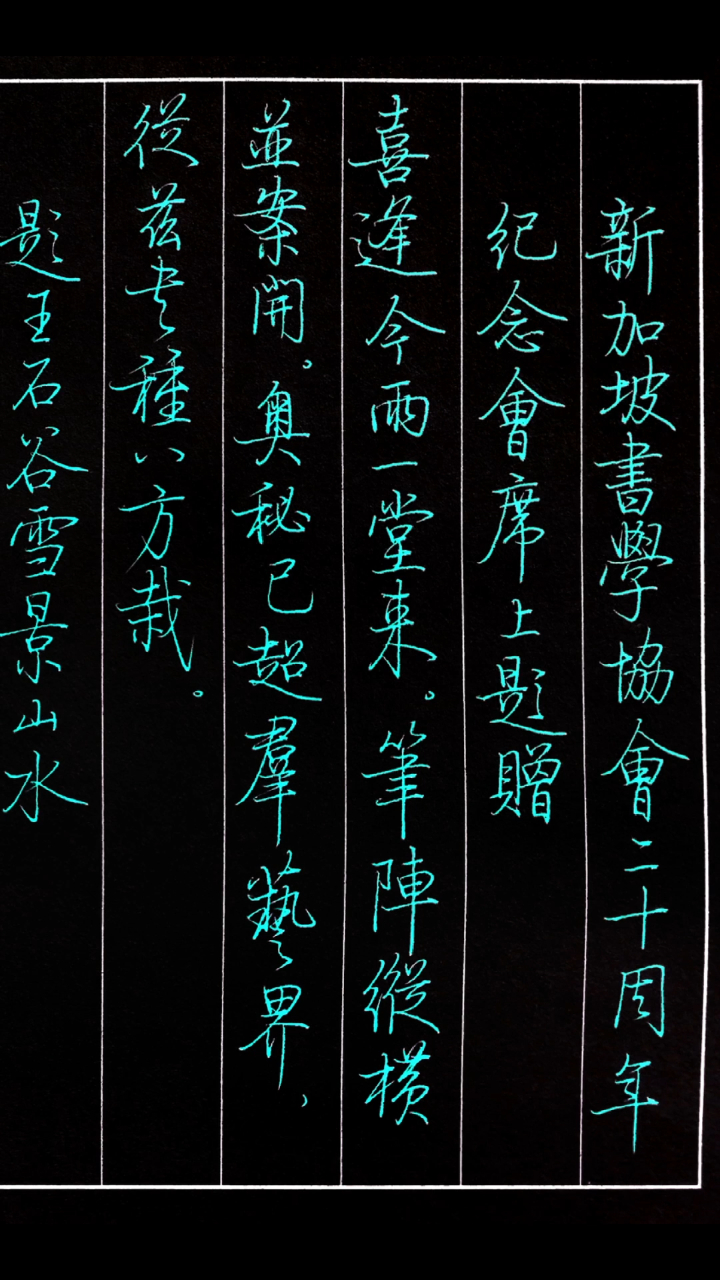 新加坡書學協會二十周年
纪念會席上題贈
喜逢今雨一堂来。筆陣縱横
並案開。奥秘已超羣藝界，
從兹去種八方栽。
題王石谷雪景山水